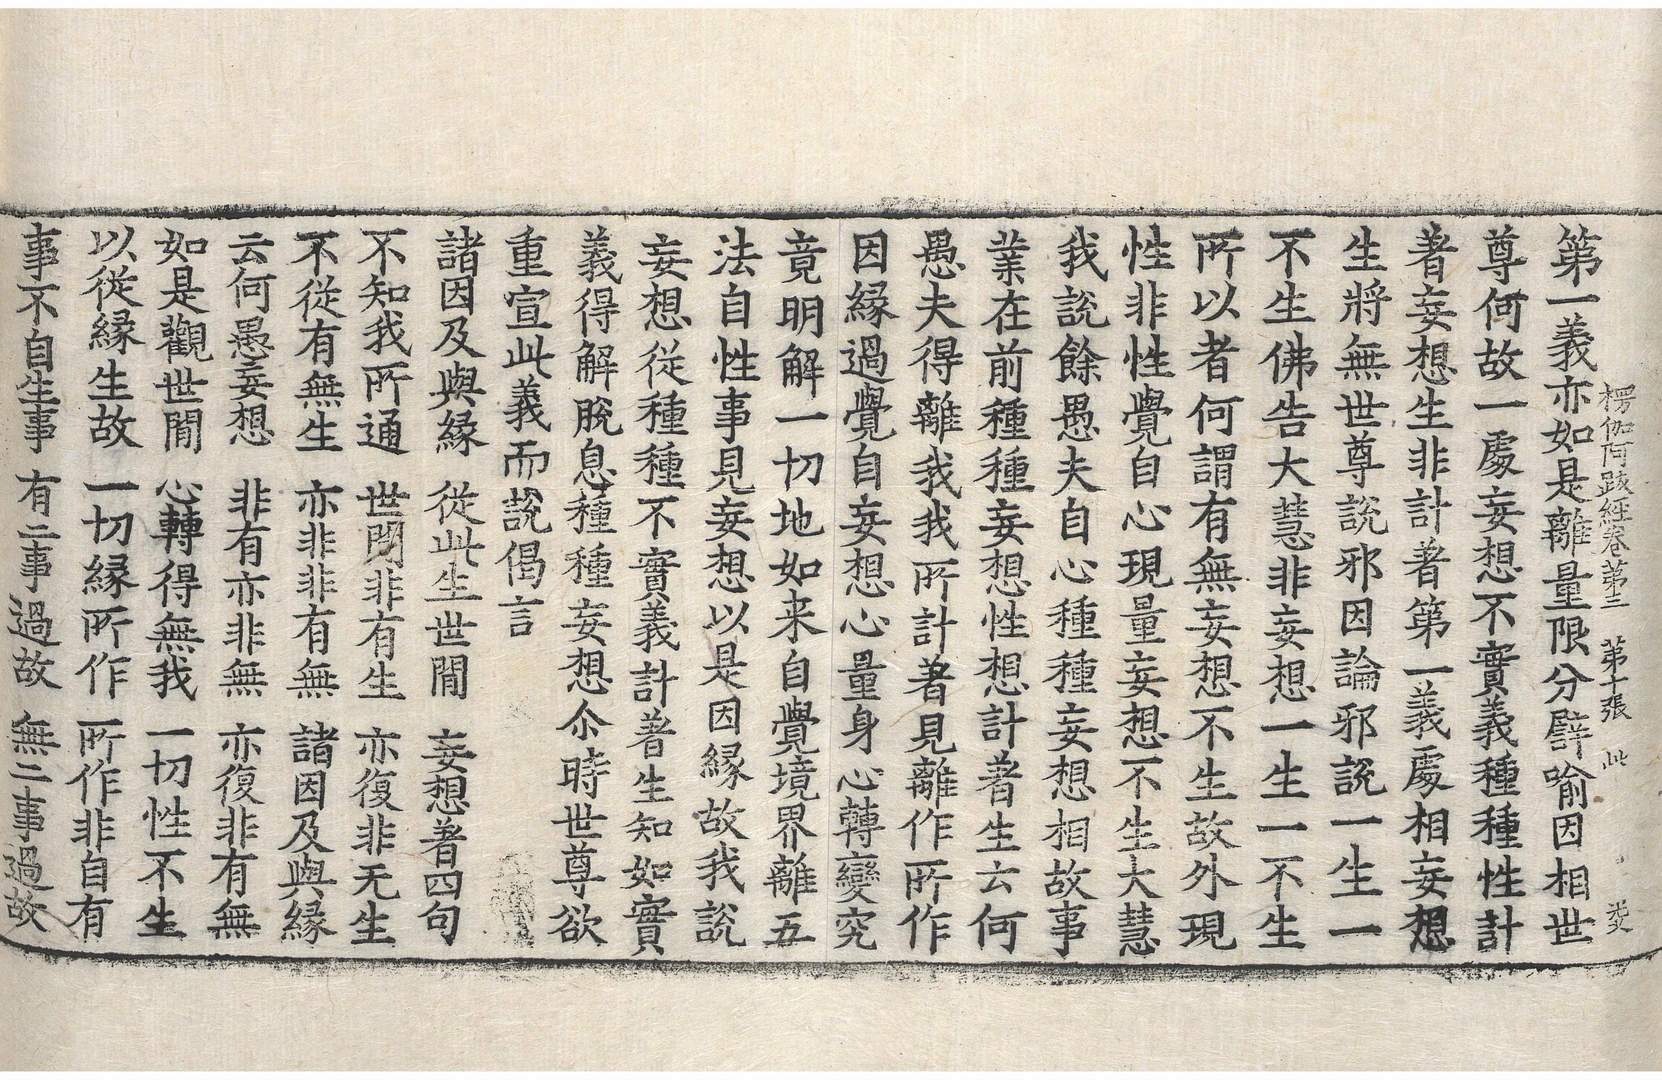 楞伽阿跋經卷第三 第十張 此
第一義亦如是離量限分譬喻因相世
尊何故一處妄想不實義種種性計
著妄想生非計著第一義處相妄想
生將無世尊說邪因論邪說一生一
不生佛告大慧非妄想一生一不生
所以者何謂有無妄想不生故外現
性非性覺自心現量妄想不生大慧
我說餘愚夫自心種種妄想相故事
業在前種種妄想性想計著生云何
愚夫得離我我所計著見離作所作
因緣過覺自妄想心量身心轉變究
竟明解一切地如来自覺境界離五
法自性事見妄想以是因緣故我說
妄想從種種不實義計著生知如實
義得解脫息種種妄想尒時世尊欲
重宣此義而說偈言
諸因及與緣 從此生世間 妄想著四句
不知我所通 世間非有生 亦復非无生
不從有無生 亦非非有無 諸因及與緣
云何愚妄想 非有亦非無 亦復非有無
如是觀世間 心轉得無我 一切性不生
以從緣生故 一切緣所作 所作非自有
事不自生事 有二事過故 無二事過故